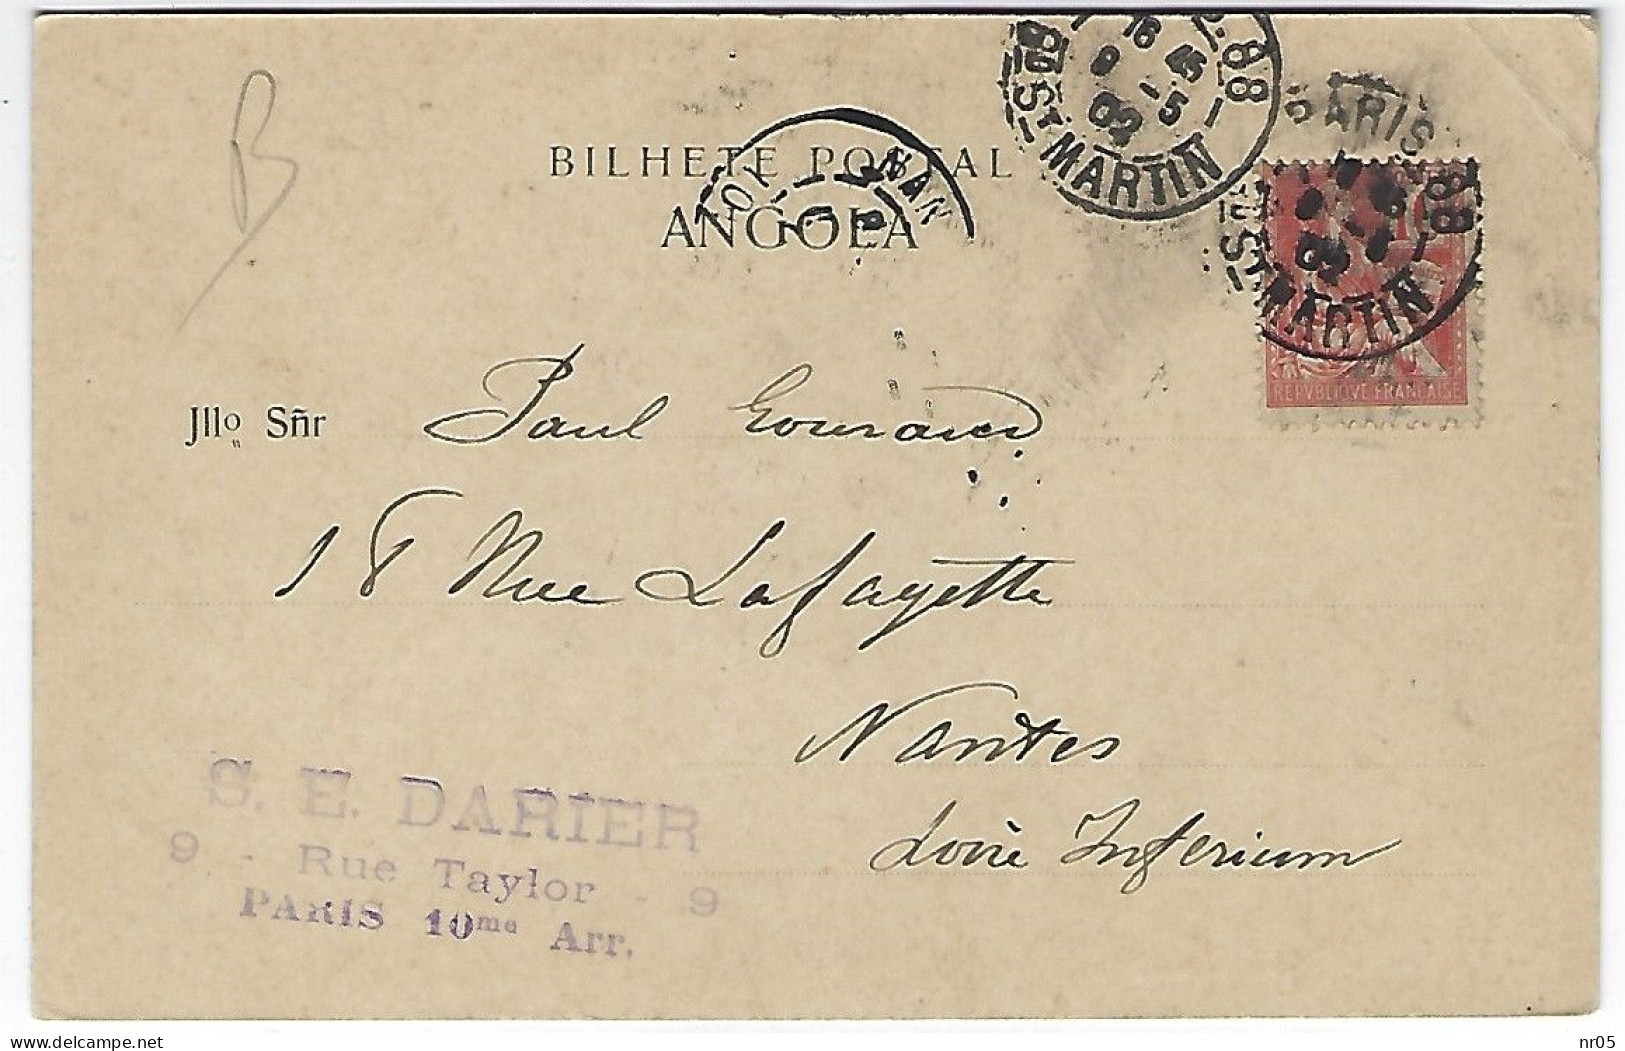 B
BILHETE POSTAL
ANGOLA
NAN
16 45
9 - 5
02
Bd St MARTIN
P. 88
PARIS
88
Bd St MARTIN
REPVBLIQVE FRANÇAISE
Jllo Sñr Paul
18 Rue Lafayette
Nantes
Loire
S. E. DARIER
9 - Rue Taylor - 9
PARIS 10me Arr.
delcampe.net
nr05